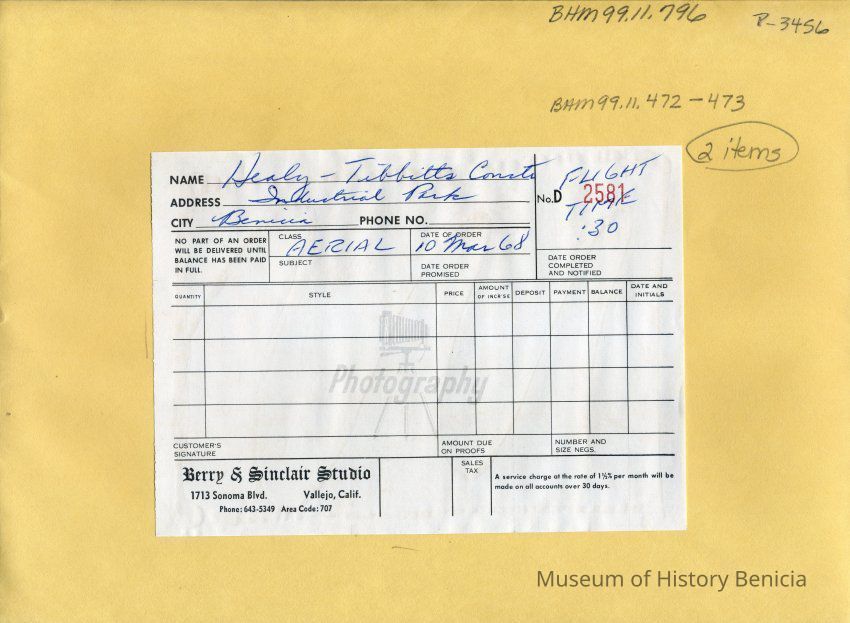 BHM99.11.796
P-3456
BHM99.11.472-473
2 items
NAME Healy - Tibbitts Constr
ADDRESS Industrial Park
CITY Benicia PHONE NO.
No. D 2581
FLIGHT
TIME
:30
NO PART OF AN ORDER
WILL BE DELIVERED UNTIL
BALANCE HAS BEEN PAID
IN FULL.
CLASS
AERIAL
SUBJECT
DATE OF ORDER
10 Mar 68
DATE ORDER
PROMISED
DATE ORDER
COMPLETED
AND NOTIFIED
QUANTITY STYLE PRICE AMOUNT OF INCR'SE DEPOSIT PAYMENT BALANCE DATE AND INITIALS
Photography
CUSTOMER'S
SIGNATURE
AMOUNT DUE
ON PROOFS
NUMBER AND
SIZE NEGS.
Berry & Sinclair Studio
1713 Sonoma Blvd. Vallejo, Calif.
Phone: 643-5349 Area Code: 707
SALES
TAX
A service charge at the rate of 1½% per month will be
made on all accounts over 30 days.
Museum of History Benicia